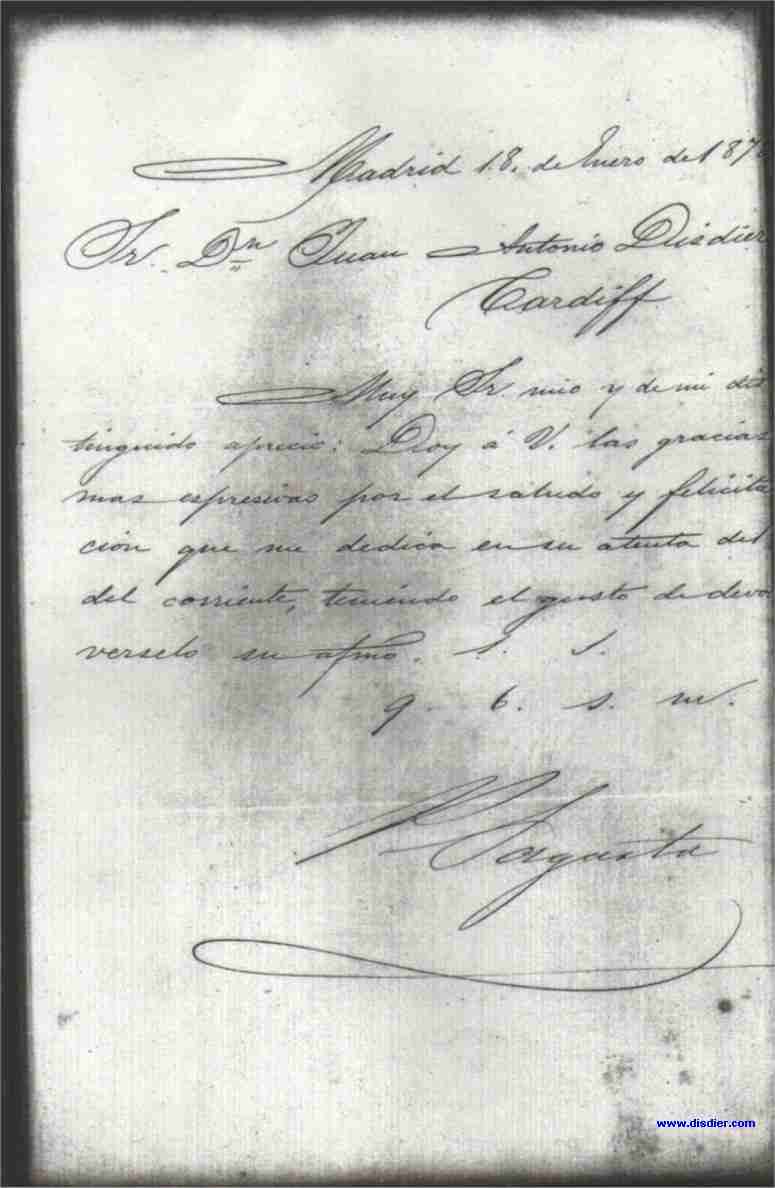 Madrid 18. de Enero de 187
Sr. Dn Juan Antonio Disdier
Cardiff
Muy Sr. mio y de mi dis
tinguido aprecio: Doy á V. las gracias
mas espresivas por el saludo y felicita
cion que me dedica en su atenta del
del corriente, teniendo el gusto de devol
verselo su afmo. s. s.
q. b. s. m.
P. Sagasta
www.disdier.com